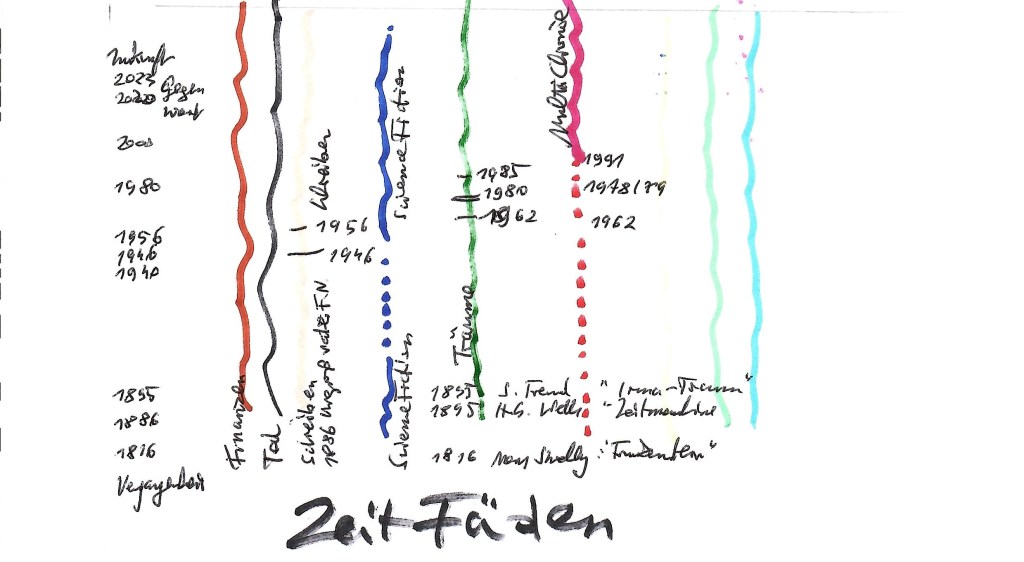 Zukunft
2023
2020 Gegen
wart
2000
1980
1956
1946
1940
1895
1886
1816
Vergangenheit
Finanzen
Tod
Schreiben
Schreiben
1886 Urgroßvater F.N.
1956
1946
Science Fiction
Science Fiction
Träume
1985
1980
1962
MultiChronie
1991
1978/79
1962
1895 S. Freud "Irma-Traum"
1895 H.G. Wells "Zeitmaschine
1816 Mary Shelly: "Frankenstein"
Zeit-Fäden